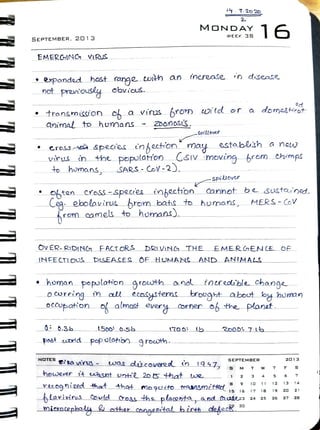 14.7.2020
2.
MONDAY 16
SEPTEMBER, 2013 WEEK 38
EMERGING VIRUS
• expanded host range with an increase in disease
not previously obvious.
• transmission of a virus from wild or a domesticated
animal to humans - zoonosis.
spillover
• cross-species infection may establish a new
virus in the population (SIV moving from chimps
to humans, SARS-CoV-2).
spillover
• often cross-species infection cannot be sustained.
(eg. ebolavirus from bats to humans, MERS-CoV
from camels to humans).
OVER-RIDING FACTORS DRIVING THE EMERGENCE OF
INFECTIOUS DISEASES OF HUMANS AND ANIMALS
• human population growth and incredible change
ocurring in all ecosystems brought about by human
occupation of almost every corner of the planet.
0: 0.3b 1500: 0.5b 1700: 1b 2000: 7.1b
past world population growth.
NOTES
• Zika virus - was discovered in 1947,
however it wasnt until 2015 that we
recognized that that moquito transmitted
flavivirus could cross the placenta, and cause
microcephaly & other congenital birth defects.
SEPTEMBER 2013
S M T W T F S
1 2 3 4 5 6 7
8 9 10 11 12 13 14
15 16 17 18 19 20 21
22 23 24 25 26 27 28
30